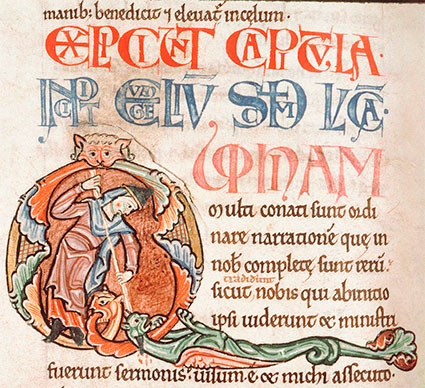 manib: benedicit ⁊ eleuat᷑ in celum .
EXPLICIUNT CAPITULA .
INCIPIT EUANGELIŪ SCDM LUCĀ .
QUONIAM
multi conati sunt ordi
nare narrationē que in
nob complete sunt rerū .
sicut nobis qui ab initio
ipsi uiderunt & ministri
fuerunt sermonis : uisum ē & michi assecuto